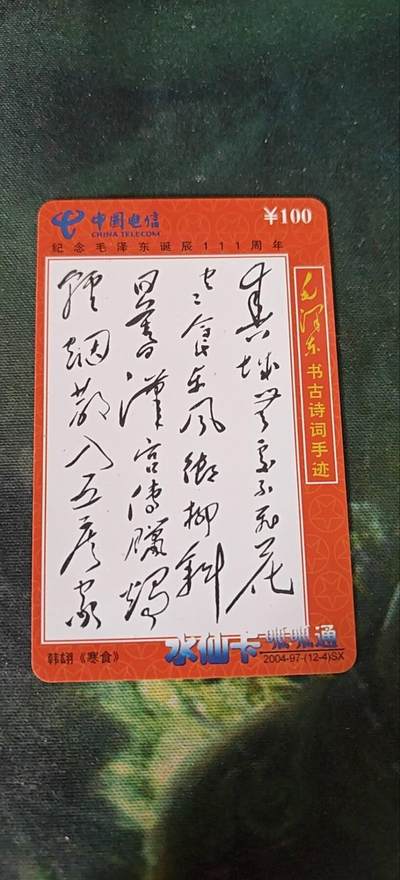 中国电信
CHINA TELECOM
¥100
纪念毛泽东诞辰111周年
毛泽东书古诗词手迹
春城無處不飛花
寒食东風御柳斜
日暮漢宮傳蠟燭
輕烟散入五侯家
韩翃《寒食》
水仙卡 通
2004-97-(12-4)SX